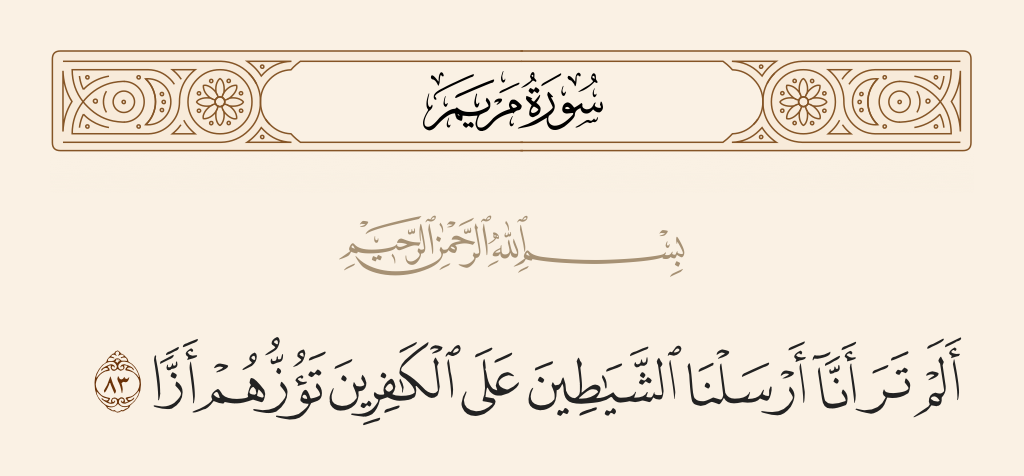 سُورَةُ مَرْيَمَ
بِسْمِ ٱللَّهِ ٱلرَّحْمَٰنِ ٱلرَّحِيمِ
أَلَمْ تَرَ أَنَّآ أَرْسَلْنَا ٱلشَّيَٰطِينَ عَلَى ٱلْكَٰفِرِينَ تَؤُزُّهُمْ أَزًّا ٨٣